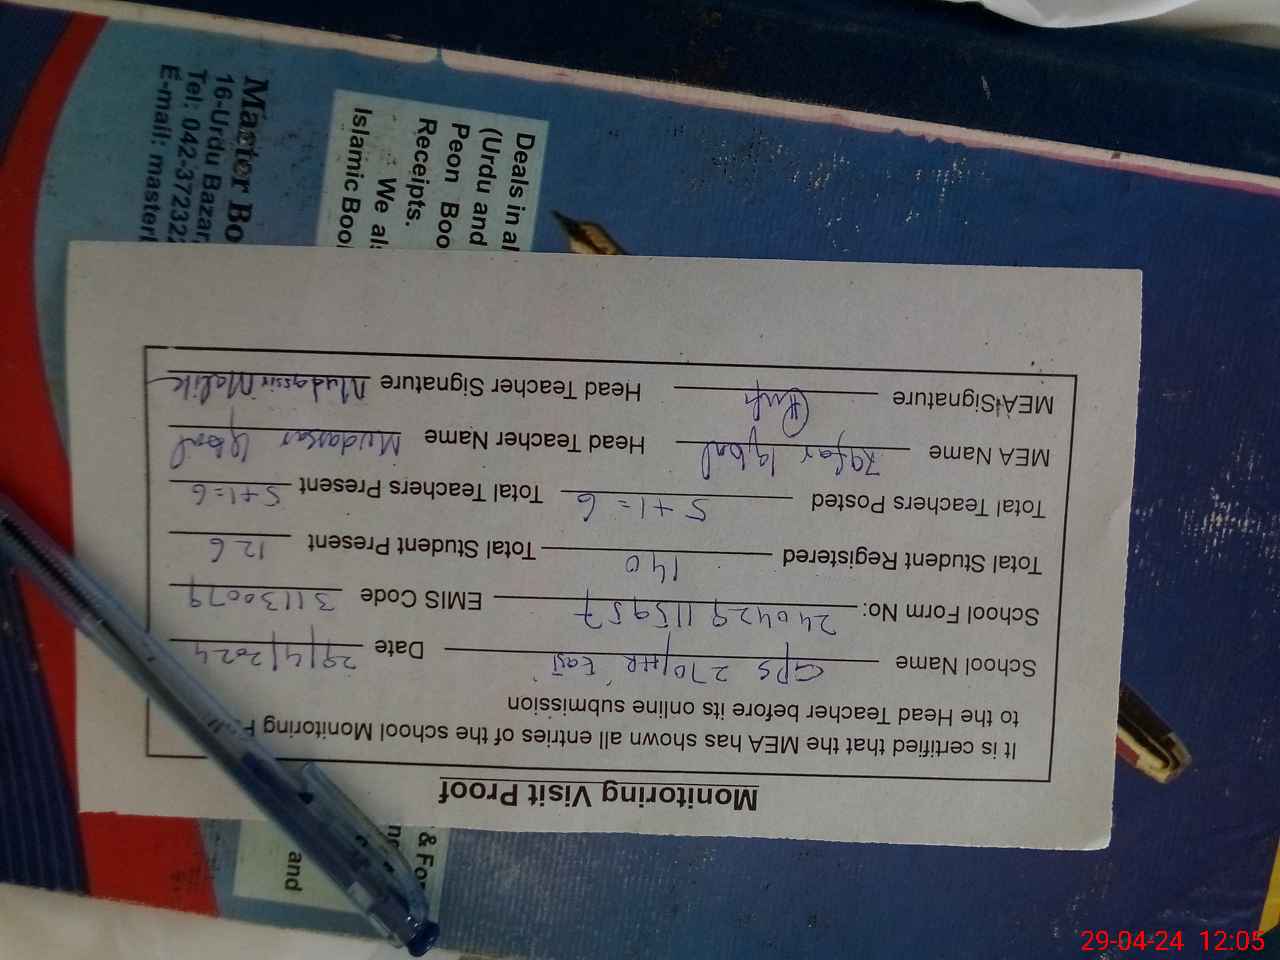 Monitoring Visit Proof
It is certified that the MEA has shown all entries of the school Monitoring
to the Head Teacher before its online submission
School Name GPS 270/HR East Date 29/4/2024
School Form No: 240429115957 EMIS Code 31130079
Total Student Registered 140 Total Student Present 126
Total Teachers Posted 5+1=6 Total Teachers Present 5+1=6
MEA Name Zafar Iqbal Head Teacher Name Mudassar Iqbal
MEA Signature Head Teacher Signature Mudassir Malik
Master Bo
16-Urdu Bazar,
Tel: 042-37232
E-mail: master
Deals in al
(Urdu and
Peon Boo
Receipts.
We al
Islamic Boo
& Fo
and
29-04-24 12:05